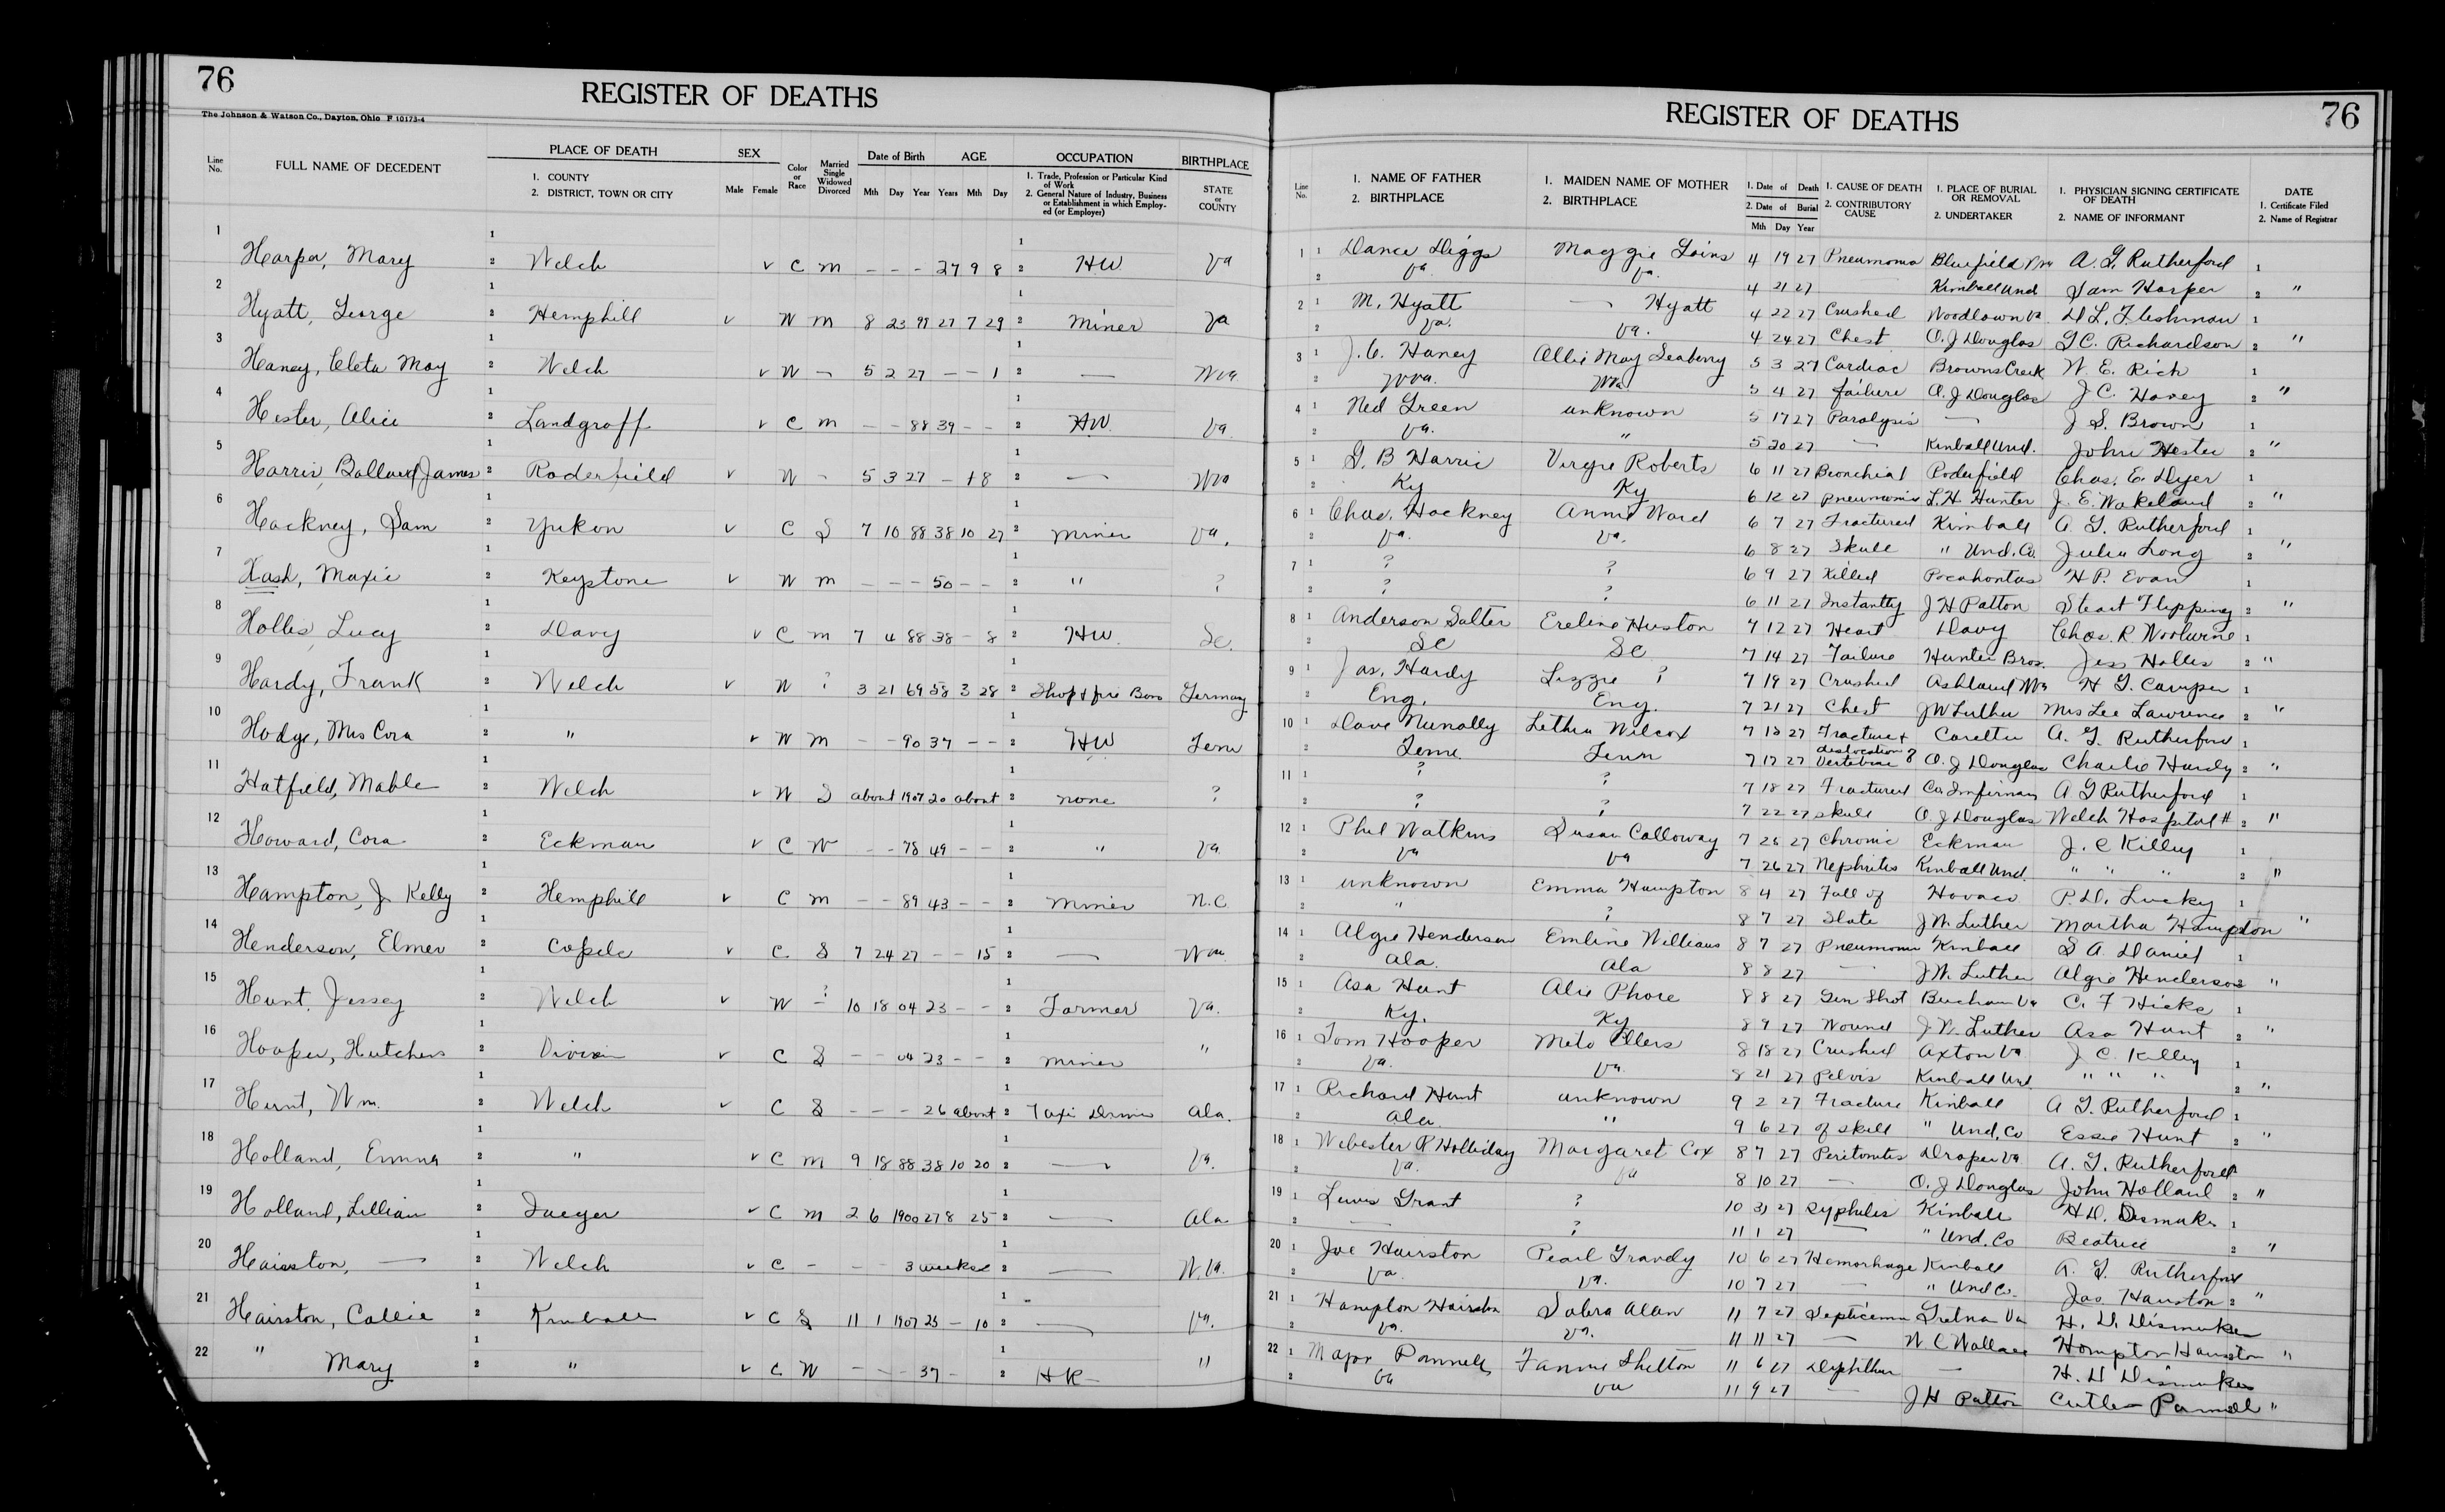 76
REGISTER OF DEATHS
The Johnson & Watson Co., Dayton, Ohio F 10173-4
Line No. FULL NAME OF DECEDENT PLACE OF DEATH 1. COUNTY 2. DISTRICT, TOWN OR CITY SEX Male Female Color or Race Married Single Widowed Divorced Date of Birth Mth Day Year AGE Years Mth Day OCCUPATION 1. Trade, Profession or Particular Kind of Work 2. General Nature of Industry, Business or Establishment in which Employed (or Employer) BIRTHPLACE STATE or COUNTY
1 Harper, Mary 1 2 Welch v C m - - - 27 9 8 1 2 HW Va
2 Hyatt, George 1 2 Hemphill v W m 8 23 99 27 7 29 1 2 Miner Va
3 Haney, Cleta May 1 2 Welch v W - 5 2 27 - - 1 1 2 — Wva
4 Hester, Alice 1 2 Landgraff v C m - - 88 39 - - 1 2 HW. Va.
5 Harris, Ballard James 1 2 Roderfield v W - 5 3 27 - 1 8 1 2 — Wva
6 Hackney, Sam 1 2 Yukon v C S 7 10 88 38 10 27 1 2 miner Va.
7 Hash, Maxie 1 2 Keystone v W m - - - 50 - - 1 2 " ?
8 Hollis, Lucy 1 2 Davy v C m 7 4 88 38 - 8 1 2 HW. Sc.
9 Hardy, Frank 1 2 Welch v W ? 3 21 69 58 3 28 1 2 Shop & fire Boss Germany
10 Hodge, Mrs Cora 1 2 " v W m - - 90 37 - - 1 2 HW Tenn
11 Hatfield, Mable 1 2 Welch v W S about 1907 20 about 1 2 none ?
12 Howard, Cora 1 2 Eckman v C W - - 78 49 - - 1 2 " Va
13 Hampton, J Kelly 1 2 Hemphill v C m - - 89 43 - - 1 2 Miner N.C.
14 Henderson, Elmer 1 2 v C S 7 24 27 - - 15 1 2 — Wva
15 Hunt, Jessey 1 2 Welch v W ? 10 18 04 23 - - 1 2 Farmer Va.
16 Hooper, Hutchens 1 2 v C S - - 04 23 - - 1 2 miner "
17 Hunt, Wm. 1 2 Welch v C S - - - 26 about 1 2 Taxi Driver Ala.
18 Holland, Emma 1 2 " v C m 9 18 88 38 10 20 1 2 — Va.
19 Holland, Lillian 1 2 Iaeger v C m 2 6 1900 27 8 25 1 2 — Ala
20 Hairston, — 1 2 Welch v C - - - 3 weeks 1 2 — W.Va.
21 Hairston, Callie 1 2 Kimball v C S 11 1 1907 25 - 10 1 2 — Va.
22 " Mary 1 2 " v C W - - - 37 - 1 2 HK- "
REGISTER OF DEATHS
76
Line No. 1. NAME OF FATHER 2. BIRTHPLACE 1. MAIDEN NAME OF MOTHER 2. BIRTHPLACE 1. Date of Death 2. Date of Burial Mth Day Year 1. CAUSE OF DEATH 2. CONTRIBUTORY CAUSE 1. PLACE OF BURIAL OR REMOVAL 2. UNDERTAKER 1. PHYSICIAN SIGNING CERTIFICATE OF DEATH 2. NAME OF INFORMANT DATE 1. Certificate Filed 2. Name of Registrar
1 1 Diggs Maggie 4 19 27 Pneumonia Bluefield A. G. Rutherford 1
2 Va Va. 4 21 27 — Kimball Und Sam Harper 2 "
2 1 M. Hyatt — Hyatt 4 22 27 Crushed Woodlawn Va 1
2 Va. Va. 4 24 27 Chest O. J Douglas G C. Richardson 2 "
3 1 J. C. Haney Allie May Seaberry 5 3 27 Cardiac Browns Creek W. E. Rich 1
2 Wva. Wva 5 4 27 failure O. J Douglas J C. Haney 2 "
4 1 Ned Green unknown 5 17 27 Paralysis — J S. Brown 1
2 Va. " 5 20 27 — Kimball Und. John Hester 2 "
5 1 G. B Harris Virgie Roberts 6 11 27 Bronchial Roderfield Chas. E. Dyer 1
2 Ky Ky 6 12 27 pneumonia L. H Hunter J. E. Wakeland 2 "
6 1 Chas. Hackney Annie Ward 6 7 27 Fractured Kimball A G. Rutherford 1
2 Va. Va. 6 8 27 Skull " Und. Co. Julia Long 2 "
7 1 ? ? 6 9 27 Killed Pocahontas H P. Evan 1
2 ? ? 6 11 27 Instantly J H Patton Flipping 2 "
8 1 Anderson Salter Ereline Huston 7 12 27 Heart Davy Chas. R. 1
2 SC SC 7 14 27 Failure Hunter Bros. Jess Hollis 2 "
9 1 Jas. Hardy Lizzie ? 7 19 27 Crushed Ashland H G. Camper 1
2 Eng. Eng. 7 21 27 Chest J W Luther Mrs Lee Lawrence 2 "
10 1 Dave Nunally Letha Wilcox 7 15 27 Fracture & Coretta A. G. Rutherford 1
2 Tenn. Tenn 7 17 27 dislocation of Vertebrae O. J Douglas Charlie Hurdy 2 "
11 1 ? ? 7 18 27 Fractured Co. Infirmary A G Rutherford 1
2 ? ? 7 22 27 skull O. J Douglas Welch Hospital # 2 "
12 1 Phil Watkins Susan Calloway 7 25 27 Chronic Eckman J. C Killey 1
2 Va Va 7 26 27 Nephritis Kimball Und. " " " 2 "
13 1 unknown Emma Hampton 8 4 27 Fall of Havaco P. D. Lucky 1
2 " ? 8 7 27 Slate J. W. Luther Martha Hampton "
14 1 Algie Henderson Emline Williams 8 7 27 Pneumonia Kimball S A. Daniel 1
2 Ala. Ala 8 8 27 — J. W. Luther Algie Henderson 2 "
15 1 Asa Hunt Alie Phore 8 8 27 Gun Shot Va C. F Hicks 1
2 Ky. Ky 8 9 27 Wound J. W. Luther Asa Hunt 2 "
16 1 Tom Hooper 8 18 27 Crushed Axton Va J C. Killey 1
2 Va. Va. 8 21 27 Pelvis Kimball Und " " " 2 "
17 1 Richard Hunt unknown 9 2 27 Fracture Kimball A G. Rutherford 1
2 Ala. " 9 6 27 of skull " Und. Co Essie Hunt 2 "
18 1 Webester R Holliday Margaret Cox 8 7 27 Peritonitis Draper Va A. G. Rutherford
2 Va. Va 8 10 27 — O. J Douglas John Holland 2 "
19 1 Lewis Grant ? 10 31 27 Syphilis Kimball H D. Dismukes 1
2 — ? 11 1 27 — " Und. Co Beatrice 2 "
20 1 Joe Hairston Pearl Grandy 10 6 27 Hemorrhage Kimball A. G. Rutherford
2 Va. Va. 10 7 27 — " Und Co. Jas Hairston 2 "
21 1 Hampton Hairston Alan 11 7 27 Septicemia Gretna Va H. D. Dismukes
2 Va. Va. 11 11 27 — W C Wallace Hampton Hairston "
22 1 Major Fannie Shelton 11 6 27 — H. D Dismukes
2 Va Va 11 9 27 — J H Patton "